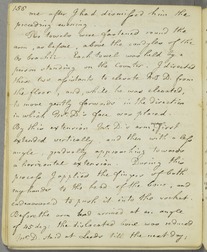 188
me, after I had dismissed him the
preceding evening.
The towels were fastened round the
arm, as before, above the condyles of the
os brachii. Each towel was held by a
person standing on the counter. I directed
these two assistants to elevate Mr D. from
the floor, and, while he was elevated,
to move gently forwards in the direction
in which Mr D's face was placed.
By this extension Mr D's arm first
extended vertically, and then with a less
angle, gradually approaching towards
a horizontal extension. During this
process I applied the fingers of both
my hands to the head of the bone, and
endeavoured to push it into the socket.
Before the arm had arrived at an angle
of 45 deg. the dislocated bone was reduced
Mr D. staid at Leeds till the next day,